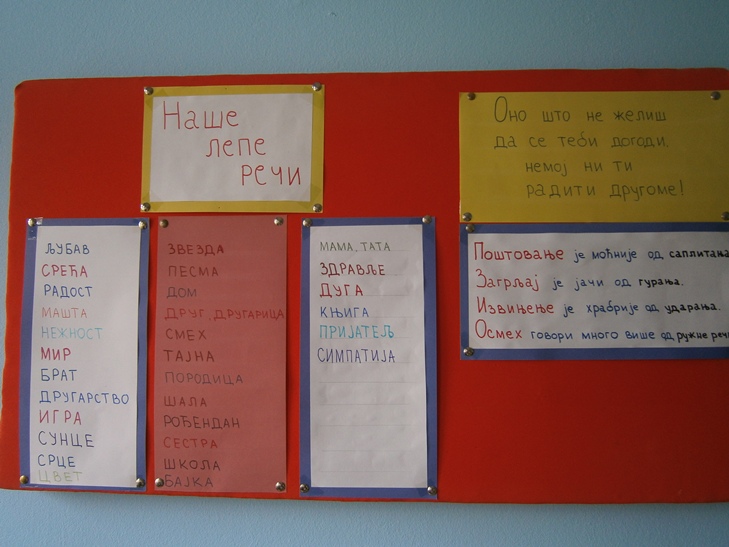 Наше
лепе
речи
Оно што не желиш
да се теби догоди,
немој ни ти
радити другоме!
ЉУБАВ
СРЕЋА
РАДОСТ
МАШТА
НЕЖНОСТ
МИР
БРАТ
ДРУГАРСТВО
ИГРА
СУНЦЕ
СРЦЕ
ЦВЕТ
ЗВЕЗДА
ПЕСМА
ДОМ
ДРУГ, ДРУГАРИЦА
СМЕХ
ТАЈНА
ПОРОДИЦА
ШАЛА
РОЂЕНДАН
СЕСТРА
ШКОЛА
БАЈКА
МАМА, ТАТА
ЗДРАВЉЕ
ДУГА
КЊИГА
ПРИЈАТЕЉ
СИМПАТИЈА
Поштовање је моћније од саплитања
Загрљај је јачи од гурања.
Извињење је храбрије од ударања.
Осмех говори много више од ружне речи